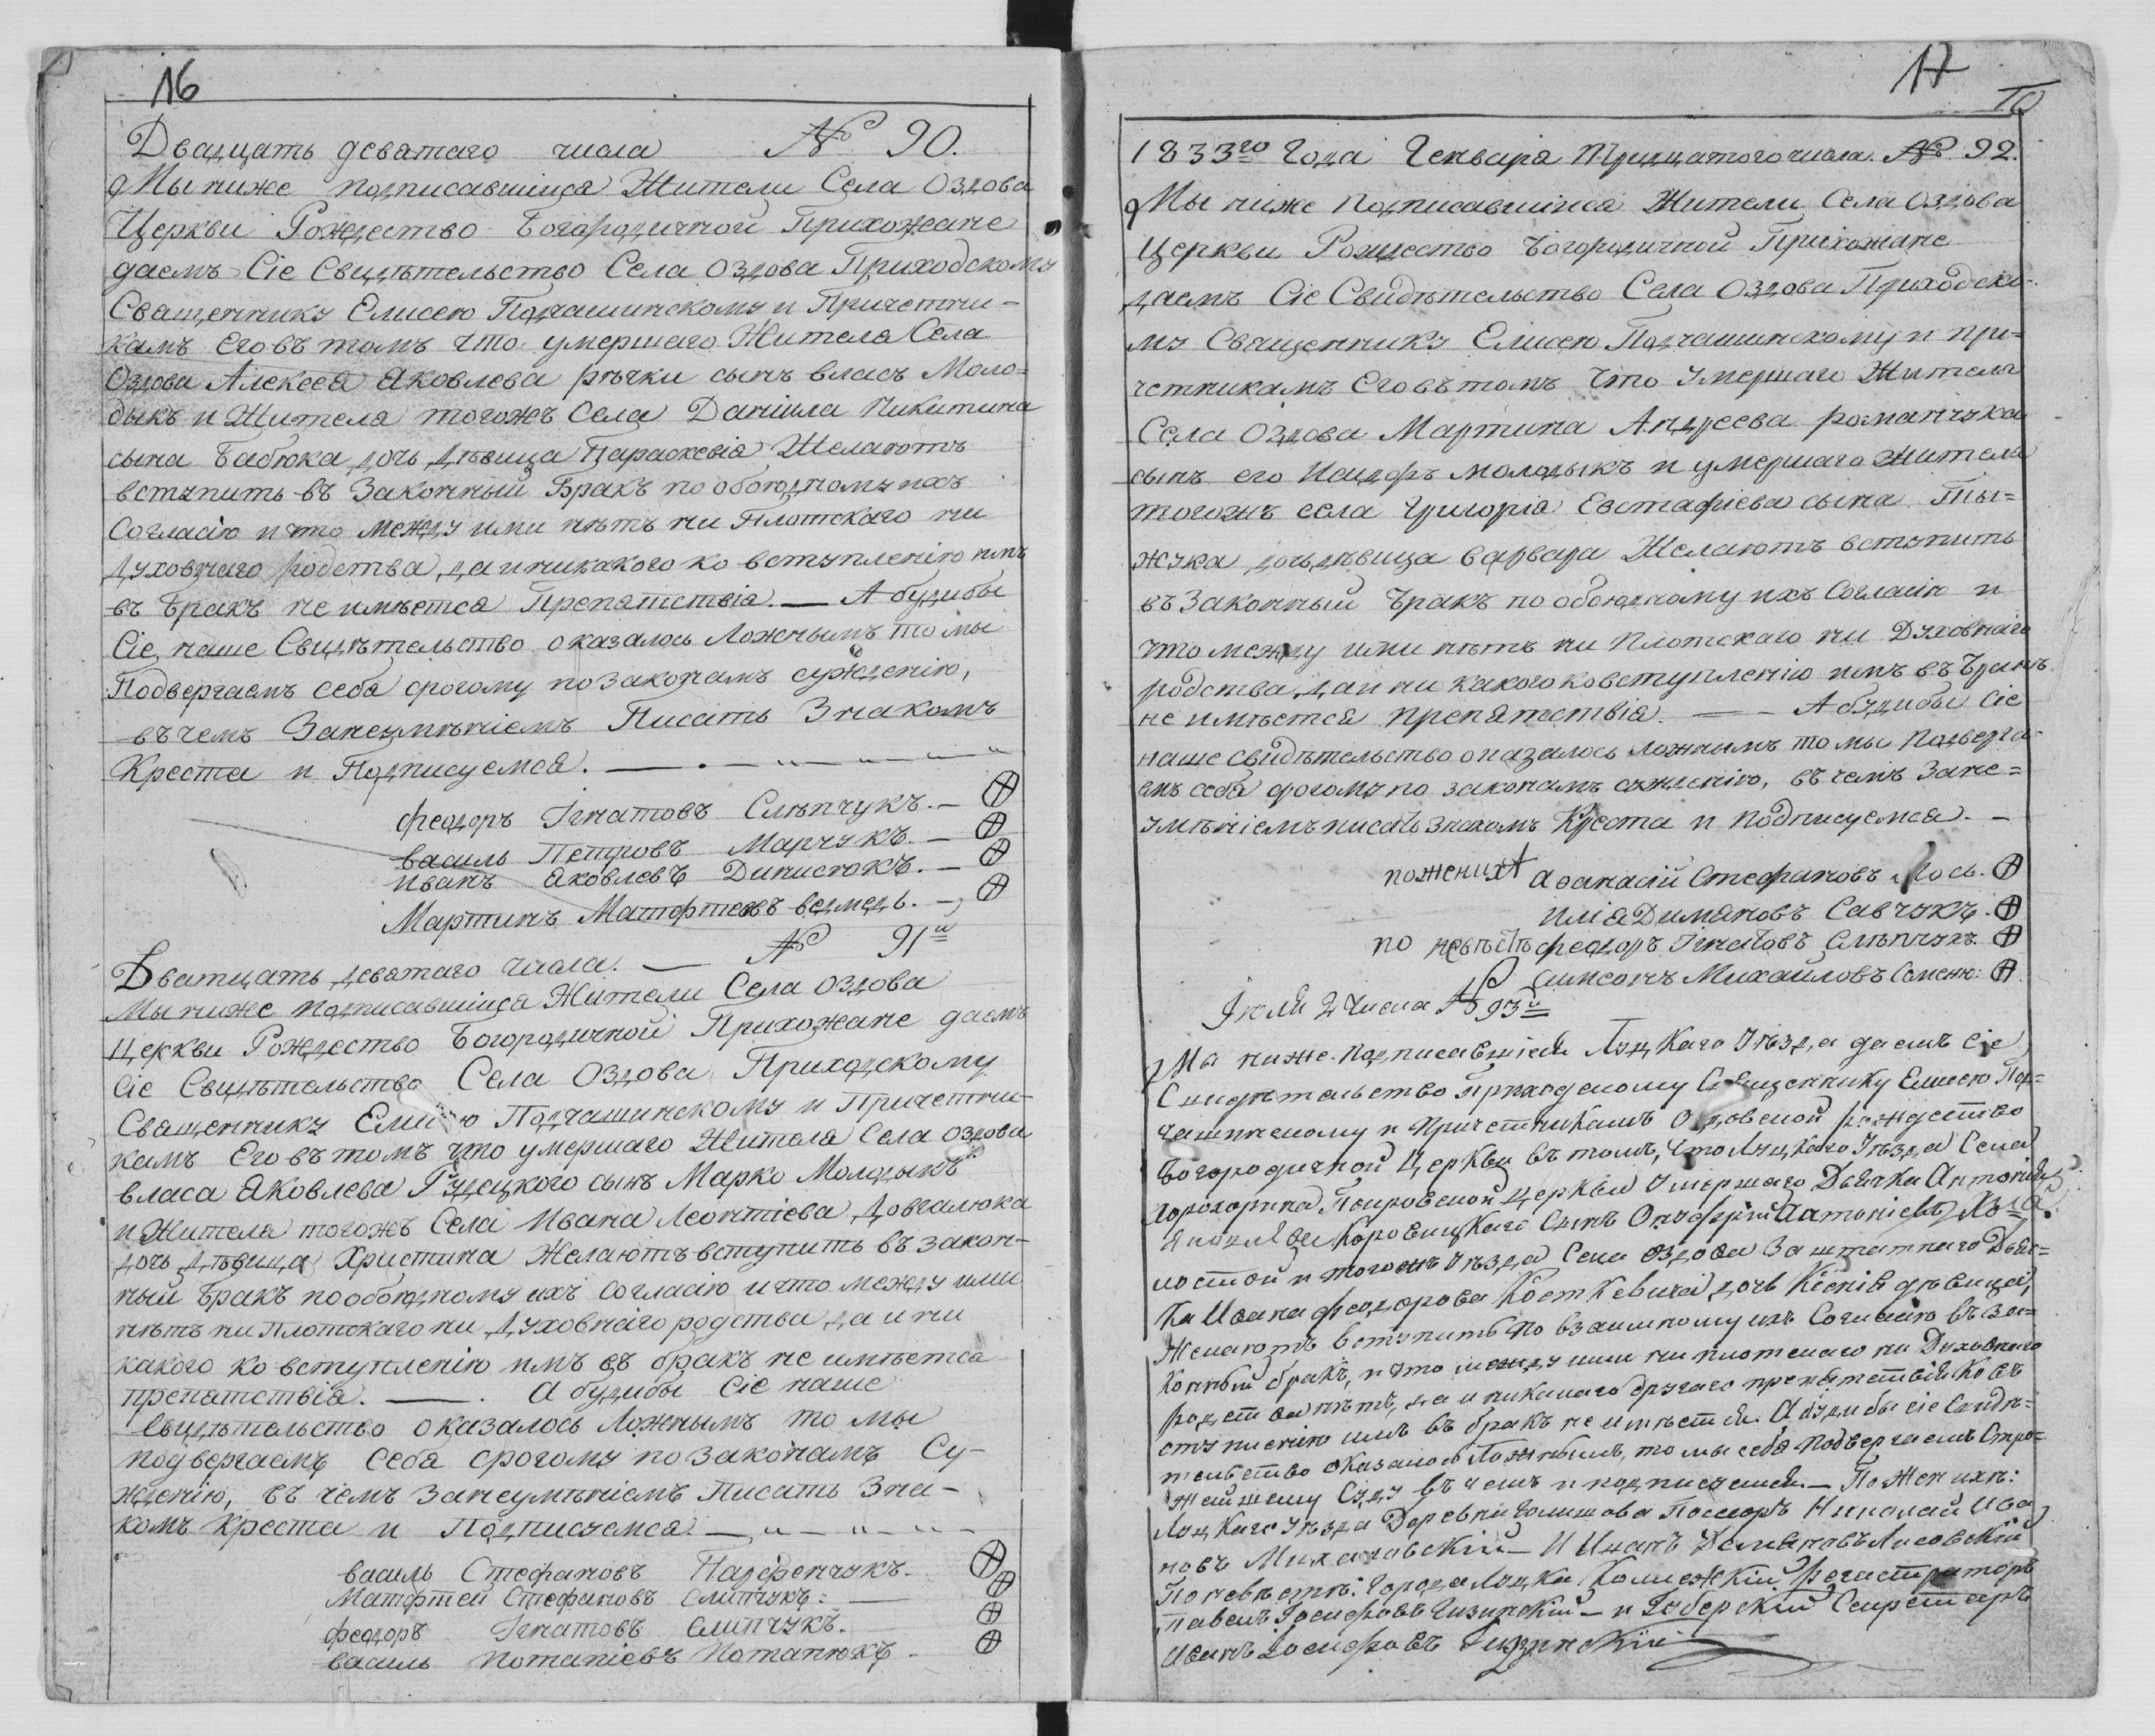 16
Двадцать деватаго числа № 90.
Мы ниже подписавшіися Жители Села Оздова
Церкви Рождество Богородичной Прихожане
даемъ Сіе Свидѣтельство Села Оздова Приходскому
Священнику Елисею Подчашинскому и Причетни-
камъ Его въ томъ что умершаго Жителя Села
Оздова Алексея Яковлева рѣчки сынъ власъ Моло-
дыкъ и Жителя тогожъ Села Даніила Никитина
сына Бабюка дочь дѣвица Параскевіа Желаютъ
вступить въ Законный Бракъ по обоюдному ихъ
Согласію и что между ими нѣтъ ни Плотскаго ни
духовнаго родства, да и никакого ко вступленію имъ
въ Бракъ не имѣется Препятствія. — А будибы
Сіе наше Свидѣтельство оказалось Ложнымъ то мы
Подвергаемъ себя срогому по законамъ сужденію,
въ чемъ Занеумѣніемъ Писать Знакомъ
Креста и Подписуемся.
феодоръ Ігнатовъ Слѣпчукъ. —
василь Петровъ Марчукъ. —
иванъ Яковлевъ Динисюкъ. —
Мартинъ Матфтеевъ ведмедь. —
№ 91й
Дватцать деватаго числа. —
Мы ниже подписавшіися Жители Села Оздова
Церкви Рождество Богородичной Прихожане даемъ
Сіе Свидѣтельство Села Оздова Приходскому
Священнику Елисею Подчашинскому и Причетни-
камъ Его въ томъ что умершаго Жителя Села Оздова
власа Яковлева Гудецкого сынъ Марко Молодыкъ
и Жителя тогожъ Села Ивана Леонтіева Довгалюка
дочь дѣвица Христина Желаютъ вступить въ закон-
ный Бракъ по обоюдному ихъ согласію и что между ими
нѣтъ ни Плотскаго ни духовнаго родства да и ни
какого ко вступленію имъ въ бракъ не имѣется
препятствія. — А будибы Сіе наше
Свидѣтельство оказалось Ложнымъ то мы
подвергаемъ Себя срогому по законамъ Су-
жденію, въ чемъ Занеумѣніемъ Писать Зна-
комъ Креста и Подписуемся. —
василь Стефановъ Парфенчукъ.
Матфтей Стефановъ слипчукъ: —
феодоръ Ігнатовъ слипчукъ.
василь Потапіевъ Потапюкъ.
17
1833го Года Генваря Тридцатого числа. № 92.
Мы ниже подписавшіися Жители Села Оздова
Церкви Рождество Богородичной Прихожане
даемъ Сіе Свидѣтельство Села Оздова Приходско-
му Священнику Елисею Подчашинскому и при-
четникамъ Его въ томъ Что Умершаго Жителя
Села Оздова Мартина Андреева романчука
сынъ его молодыкъ и умершаго Жителя
тогожъ села григоріа Евстафіева сына Пы-
жука дочь дѣвица варвара Желаютъ вступить
въ Законный Бракъ по обоюдному ихъ Согласію и
что между ими нѣтъ ни Плотскаго ни Духовнаго
родства, да и ни какого ко вступленію имъ въ Бракъ
не имѣется препятствія. — А будибы Сіе
наше свидѣтельство оказалось ложнымъ то мы подверга-
емъ себя срогому по законамъ сужденію, въ чемъ Зане-
умѣніемъ писать знакомъ Креста и подписуемся. —
по женихѣ Афанасий Стефановъ Лось.
иліа Димяновъ Савчукъ.
по невѣстѣ феодоръ Ігнатовъ слѣпчукъ.
симеонъ Михайловъ Семеню:
Іюля 2 Числа № 93й
Мы ниже подписавшіеся Луцкаго Уѣзда даемъ Сіе
Свидѣтельство приходскому Священнику Елисею Под-
чашинскому и причетникамъ Оздовской рождество
Богородичной Церкви въ томъ, что Луцкаго Уѣзда Села
Покровской церкви Умершаго Дьячка Антонія
Коровицкаго Сынъ Онуфрій Антоніевъ Хо-
лостой и того жъ Уѣзда Села Оздова Заштатнаго Дьяч-
ка Ивана феодорова Косткевича дочь Ксенія дѣвица,
Желаютъ вступить по взаимному ихъ Согласію въ За-
конный бракъ, и что между ими ни плотскаго ни Духовнаго
родства нѣтъ, да и никакого другаго препятствія ко в-
ступленію имъ въ бракъ не имѣется. А будибы сіе Свидѣ-
тельство оказалось Ложнымъ, то мы себя подвергаемъ Стро-
жайшему Суду въ чемъ и подписуемся. — По Женихѣ:
Луцкаго Уѣзда Деревни Посесоръ Николай Ива
новъ Михаловскій — И Игнатъ Демяновъ Лисовскій
По невѣстѣ: Города Луцка Колежскій регистраторъ
павелъ Іосифовъ Гизинскій — и Губерскій Секретаръ
Іосифовъ Гизинскій